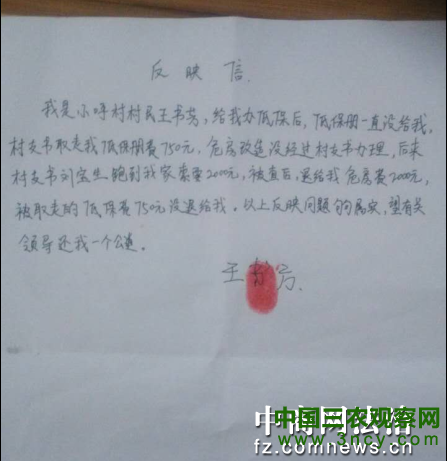 反映信.
我是小呼村村民王书芳，给我办低保后，低保册一直没给我，
村支书取走我低保册费750元，危房改造没经过村支书办理，后来
村支书刘宝生跑到我家索要2000元，被查后，退给我危房费2000元，
被取走的低保费750元没退给我。以上反映问题句句属实，望有关
领导还我一个公道。
王书芳.
中商网法治
fz.comnews.cn
中国三农观察网
www.3ncy.com